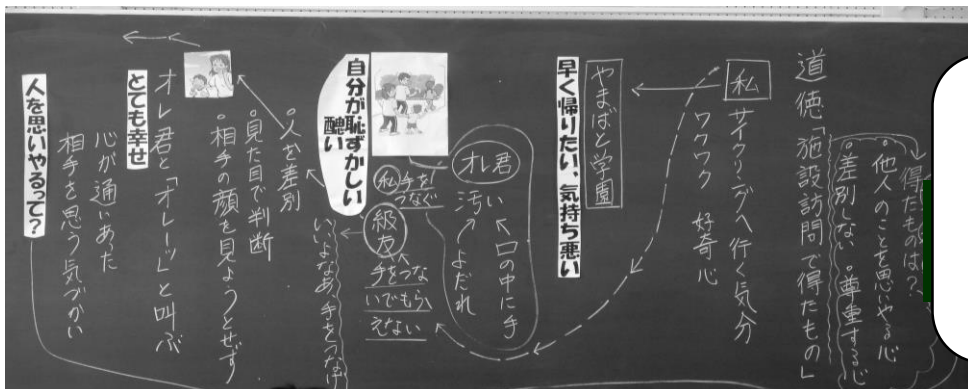 得たものは?
・他人のことを思いやる心
・差別しない ・尊重する心
道徳「施設訪問で得たもの」
私
サイクリングへ行く気分
ワクワク 好奇心
やまばと学園
早く帰りたい、気持ち悪い
オレ君
汚い
口の中に手
よだれ
私 手をつなぐ
級友
手をつないでもらえない
いいよなあ、手をつなげ
自分が恥ずかしい
醜い
・人を差別
・見た目で判断
・相手の顔を見ようとせず
オレ君と「オレーッ」と叫ぶ
とても幸せ
心が通いあった
相手を思う気づかい
人を思いやるって?